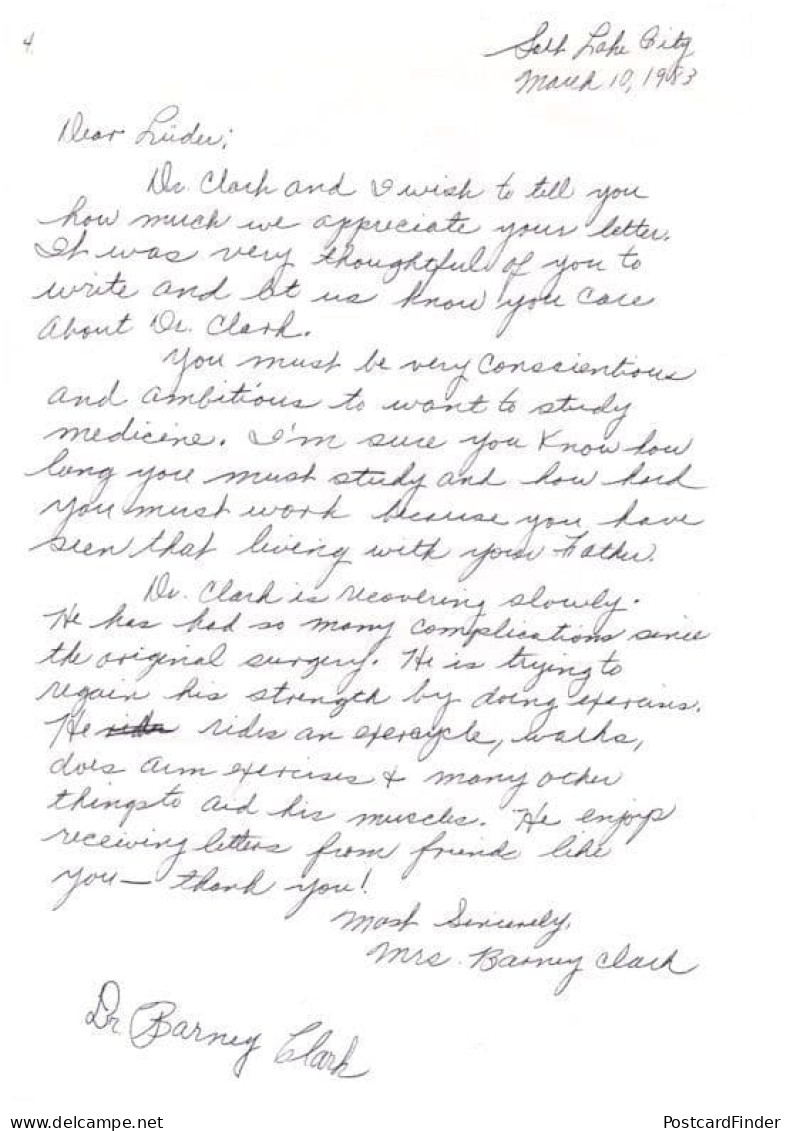 4.
Salt Lake City
March 10, 1983
Dear Lüder;
Dr. Clark and I wish to tell you
how much we appreciate your letter.
It was very thoughtful of you to
write and let us know you care
about Dr. Clark.
You must be very conscientious
and ambitious to want to study
medicine. I'm sure you know how
long you must study and how hard
you must work because you have
seen that living with your Father.
Dr. Clark is recovering slowly.
He has had so many complications since
the original surgery. He is trying to
regain his strength by doing exercises.
He ride rides an exercycle, walks,
does arm exercises & many other
things to aid his muscles. He enjoys
receiving letters from friends like
you — thank you!
Most Sincerely,
Mrs. Barney Clark
Dr. Barney Clark
www.delcampe.net
PostcardFinder